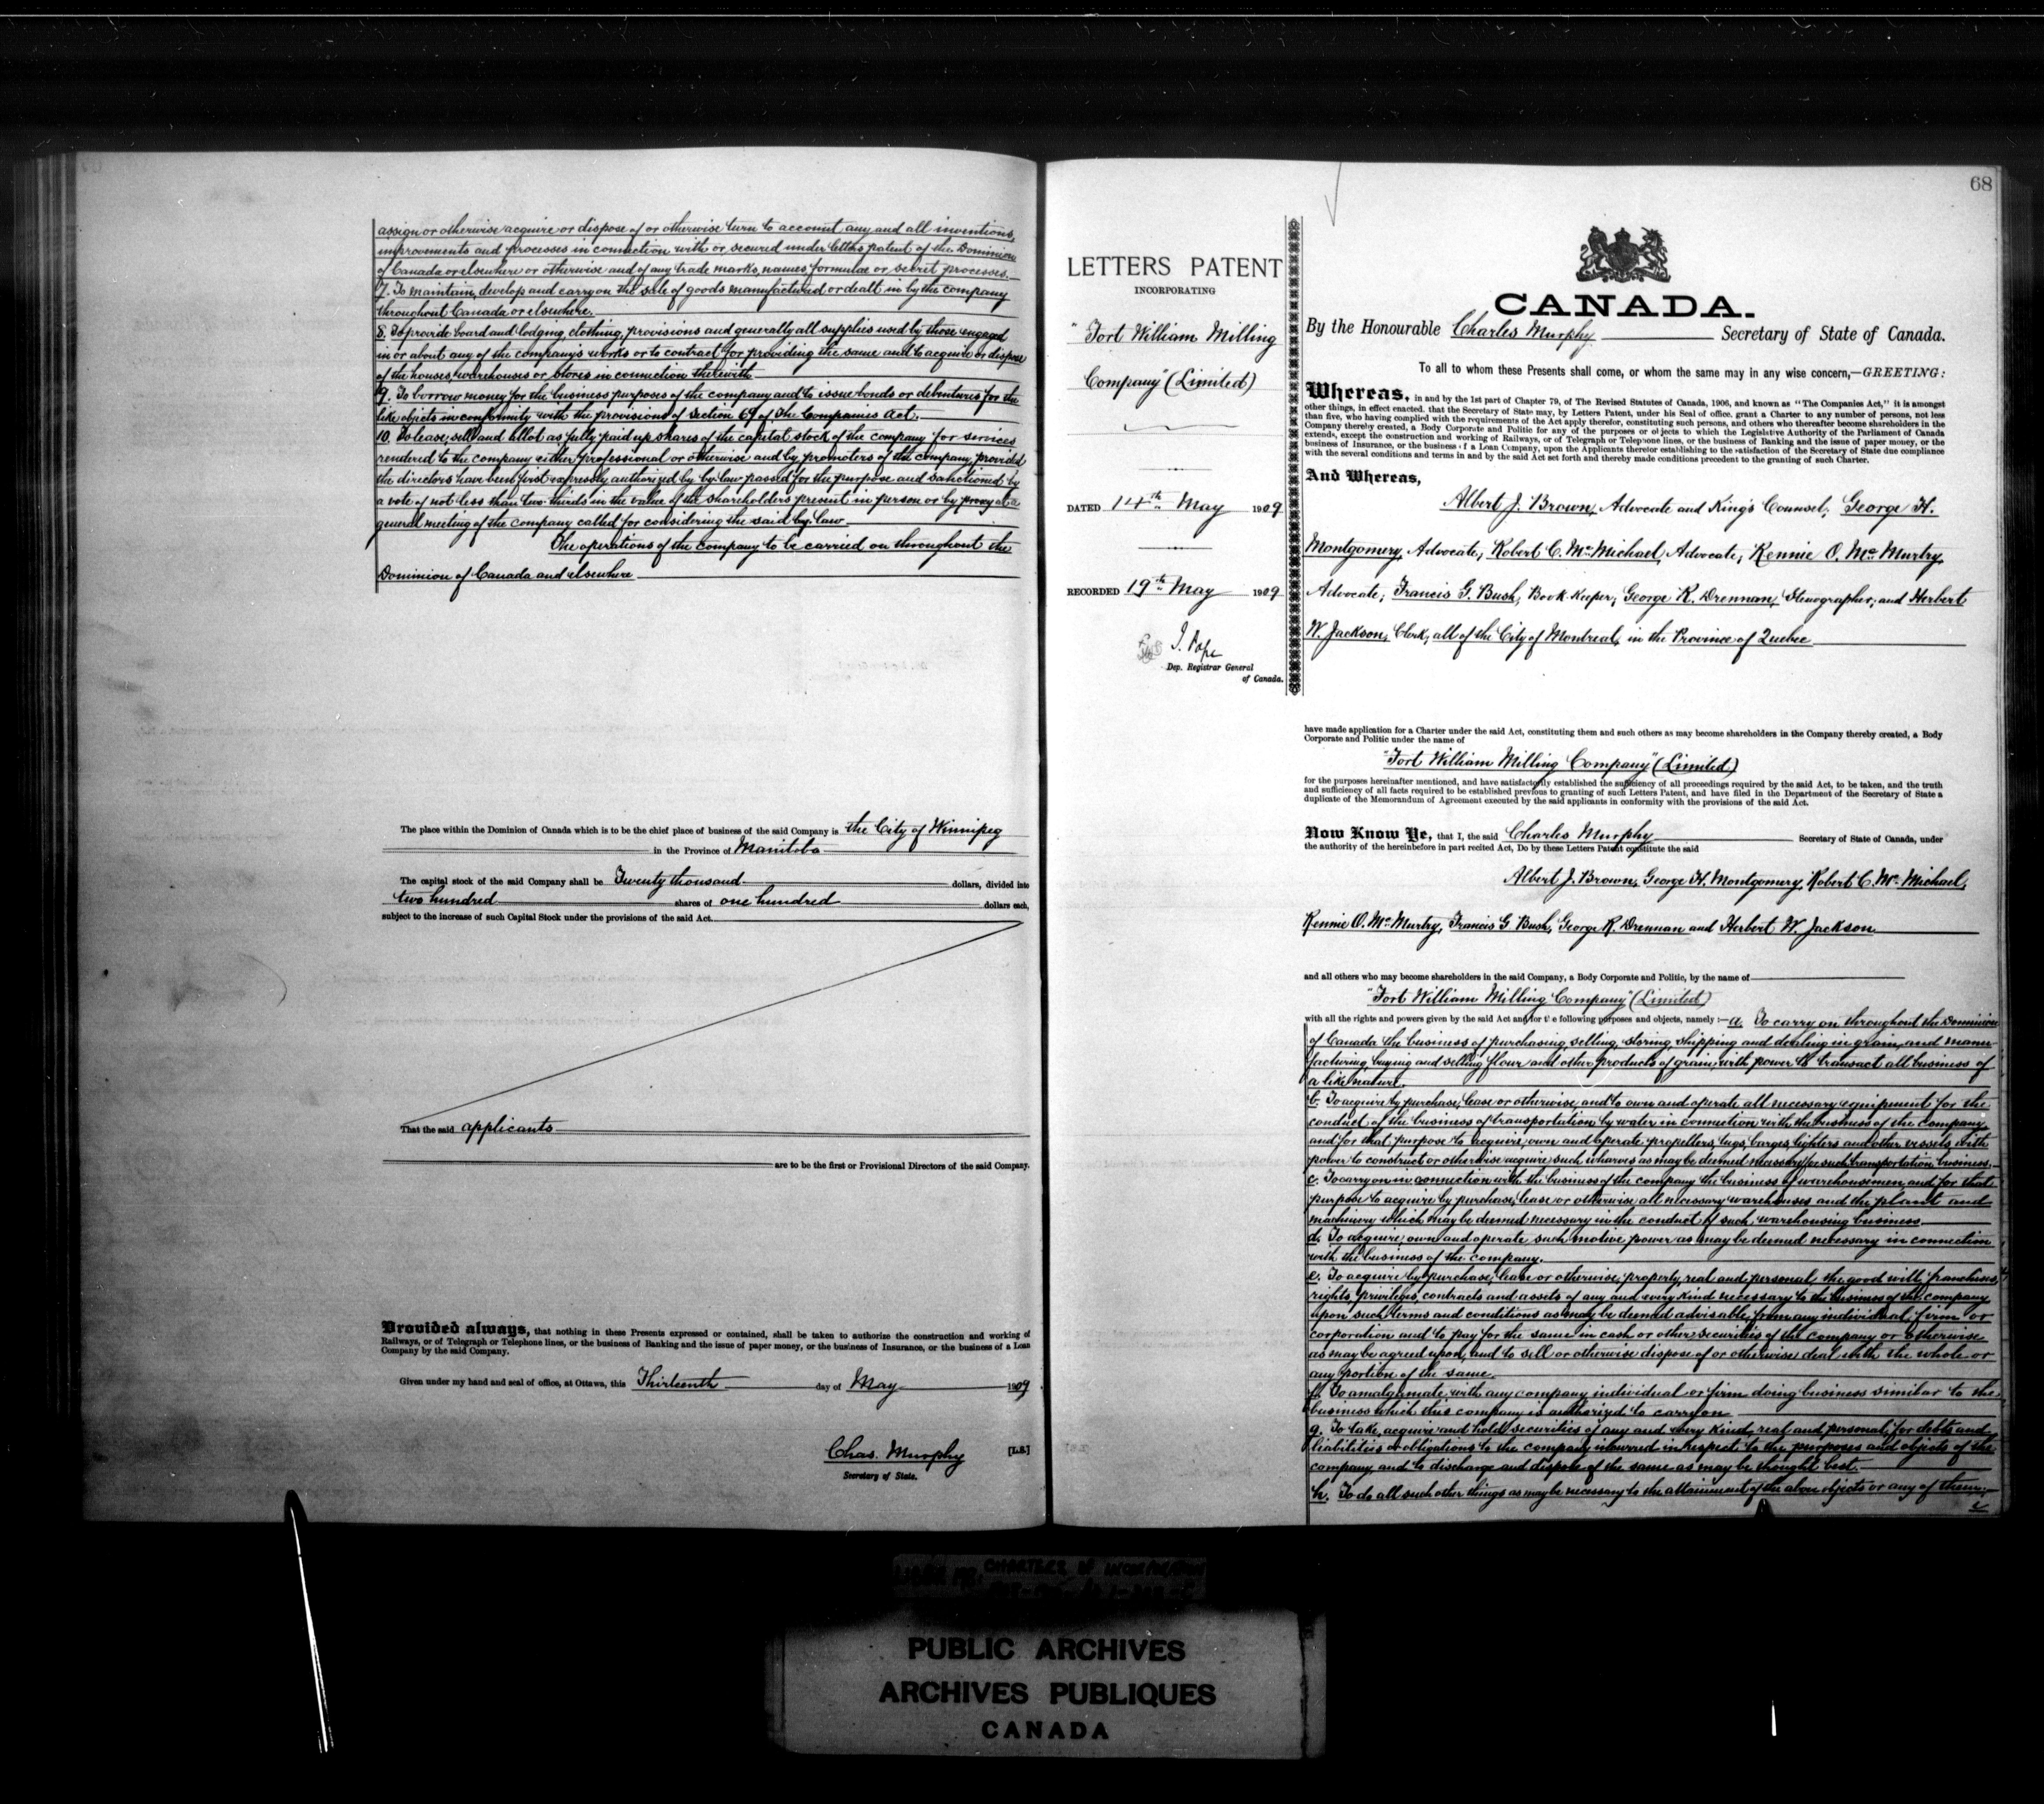 assign or otherwise acquire or dispose of or otherwise turn to account any and all inventions,
improvements and processes in connection with or secured under letters patent of the Dominion
of Canada or elsewhere or otherwise and of any trade marks, names, formulae or secret processes.
7. To maintain, develop and carry on the sale of goods manufactured or dealt in by the company
throughout Canada or elsewhere.
8. To provide board and lodging, clothing, provisions and generally all supplies used by those engaged
in or about any of the company's works or to contract for providing the same and to acquire or dispose
of the houses, warehouses or stores in connection therewith
9. To borrow money for the business purposes of the company and to issue bonds or debentures for the
like objects in conformity with the provisions of section 69 of The Companies Act.
10. To lease, sell and allot as fully paid up shares of the capital stock of the company for services
rendered to the company either professional or otherwise and by promoters of the company, provided
the directors have been first expressly authorized by by-law passed for the purpose and sanctioned by
a vote of not less than two thirds in the value of the shareholders present in person or by proxy at a
general meeting of the company called for considering the said by-law
The operations of the company to be carried on throughout the
Dominion of Canada and elsewhere
The place within the Dominion of Canada which is to be the chief place of business of the said Company is the City of Winnipeg
in the Province of Manitoba
The capital stock of the said Company shall be Twenty thousand dollars, divided into
two hundred shares of one hundred dollars each,
subject to the increase of such Capital Stock under the provisions of the said Act.
That the said applicants
are to be the first or Provisional Directors of the said Company.
Provided always, that nothing in these Presents expressed or contained, shall be taken to authorize the construction and working of
Railways, or of Telegraph or Telephone lines, or the business of Banking and the issue of paper money, or the business of Insurance, or the business of a Loan
Company by the said Company.
Given under my hand and seal of office, at Ottawa, this Thirteenth day of May 1909
Chas. Murphy [L.S.]
Secretary of State.
68
LETTERS PATENT
INCORPORATING
"Fort William Milling
Company" (Limited)
DATED 14th May 1909
RECORDED 19th May 1909
J. Pope
Dep. Registrar General
of Canada.
CANADA.
By the Honourable Charles Murphy Secretary of State of Canada.
To all to whom these Presents shall come, or whom the same may in any wise concern,—GREETING:
Whereas, in and by the 1st part of Chapter 79, of The Revised Statutes of Canada, 1906, and known as "The Companies Act," it is amongst
other things, in effect enacted, that the Secretary of State may, by Letters Patent, under his Seal of office, grant a Charter to any number of persons, not less
than five, who having complied with the requirements of the Act apply therefor, constituting such persons, and others who thereafter become shareholders in the
Company thereby created, a Body Corporate and Politic for any of the purposes or objects to which the Legislative Authority of the Parliament of Canada
extends, except the construction and working of Railways, or of Telegraph or Telephone lines, or the business of Banking and the issue of paper money, or the
business of Insurance, or the business of a Loan Company, upon the Applicants therefor establishing to the satisfaction of the Secretary of State due compliance
with the several conditions and terms in and by the said Act set forth and thereby made conditions precedent to the granting of such Charter.
And Whereas,
Albert J. Brown, Advocate and King's Counsel, George H.
Montgomery, Advocate, Robert C. McMichael, Advocate, Rennie O. McMurtry,
Advocate; Francis G. Bush, Book-keeper, George R. Drennan, Stenographer, and Herbert
W. Jackson, Clerk, all of the City of Montreal, in the Province of Quebec
have made application for a Charter under the said Act, constituting them and such others as may become shareholders in the Company thereby created, a Body
Corporate and Politic under the name of
"Fort William Milling Company" (Limited)
for the purposes hereinafter mentioned, and have satisfactorily established the sufficiency of all proceedings required by the said Act, to be taken, and the truth
and sufficiency of all facts required to be established previous to granting of such Letters Patent, and have filed in the Department of the Secretary of State a
duplicate of the Memorandum of Agreement executed by the said applicants in conformity with the provisions of the said Act.
Now Know Ye, that I, the said Charles Murphy Secretary of State of Canada, under
the authority of the hereinbefore in part recited Act, Do by these Letters Patent constitute the said
Albert J. Brown, George H. Montgomery, Robert C. McMichael,
Rennie O. McMurtry, Francis G Bush, George R. Drennan and Herbert W. Jackson
and all others who may become shareholders in the said Company, a Body Corporate and Politic, by the name of
"Fort William Milling Company" (Limited)
with all the rights and powers given by the said Act and for the following purposes and objects, namely:—a. To carry on throughout the Dominion
of Canada the business of purchasing, selling, storing, shipping and dealing in grain, and manu-
facturing, buying and selling flour and other products of grain, with power to transact all business of
a like nature.
b. To acquire by purchase, lease or otherwise, and to own and operate all necessary equipment for the
conduct of the business of transportation by water in connection with the business of the company
and for that purpose to acquire, own and operate propellers, tugs, barges, lighters and other vessels with
power to construct or otherwise acquire such wharves as may be deemed necessary for such transportation business.
c. To carry on in connection with the business of the company the business of warehousemen, and for that
purpose to acquire by purchase, lease or otherwise all necessary warehouses and the plant and
machinery which may be deemed necessary in the conduct of such warehousing business.
d. To acquire, own and operate such motive power as may be deemed necessary in connection
with the business of the company.
e. To acquire by purchase, lease or otherwise, property, real and personal, the good will, franchises,
rights, privileges, contracts and assets of any and every kind necessary to the business of the company
upon such terms and conditions as may be deemed advisable, from any individual, firm or
corporation and to pay for the same in cash or other securities of the company or otherwise
as may be agreed upon, and to sell or otherwise dispose of or otherwise deal with the whole or
any portion of the same.
f. To amalgamate with any company individual or firm doing business similar to the
business which this company is authorized to carry on
g. To take, acquire and hold securities of any and every kind, real and personal, for debts and
liabilities or obligations to the company incurred in respect to the purposes and objects of the
company, and to discharge and dispose of the same as may be thought best.
h. To do all such other things as may be necessary to the attainment of the above objects or any of them;
PUBLIC ARCHIVES
ARCHIVES PUBLIQUES
CANADA